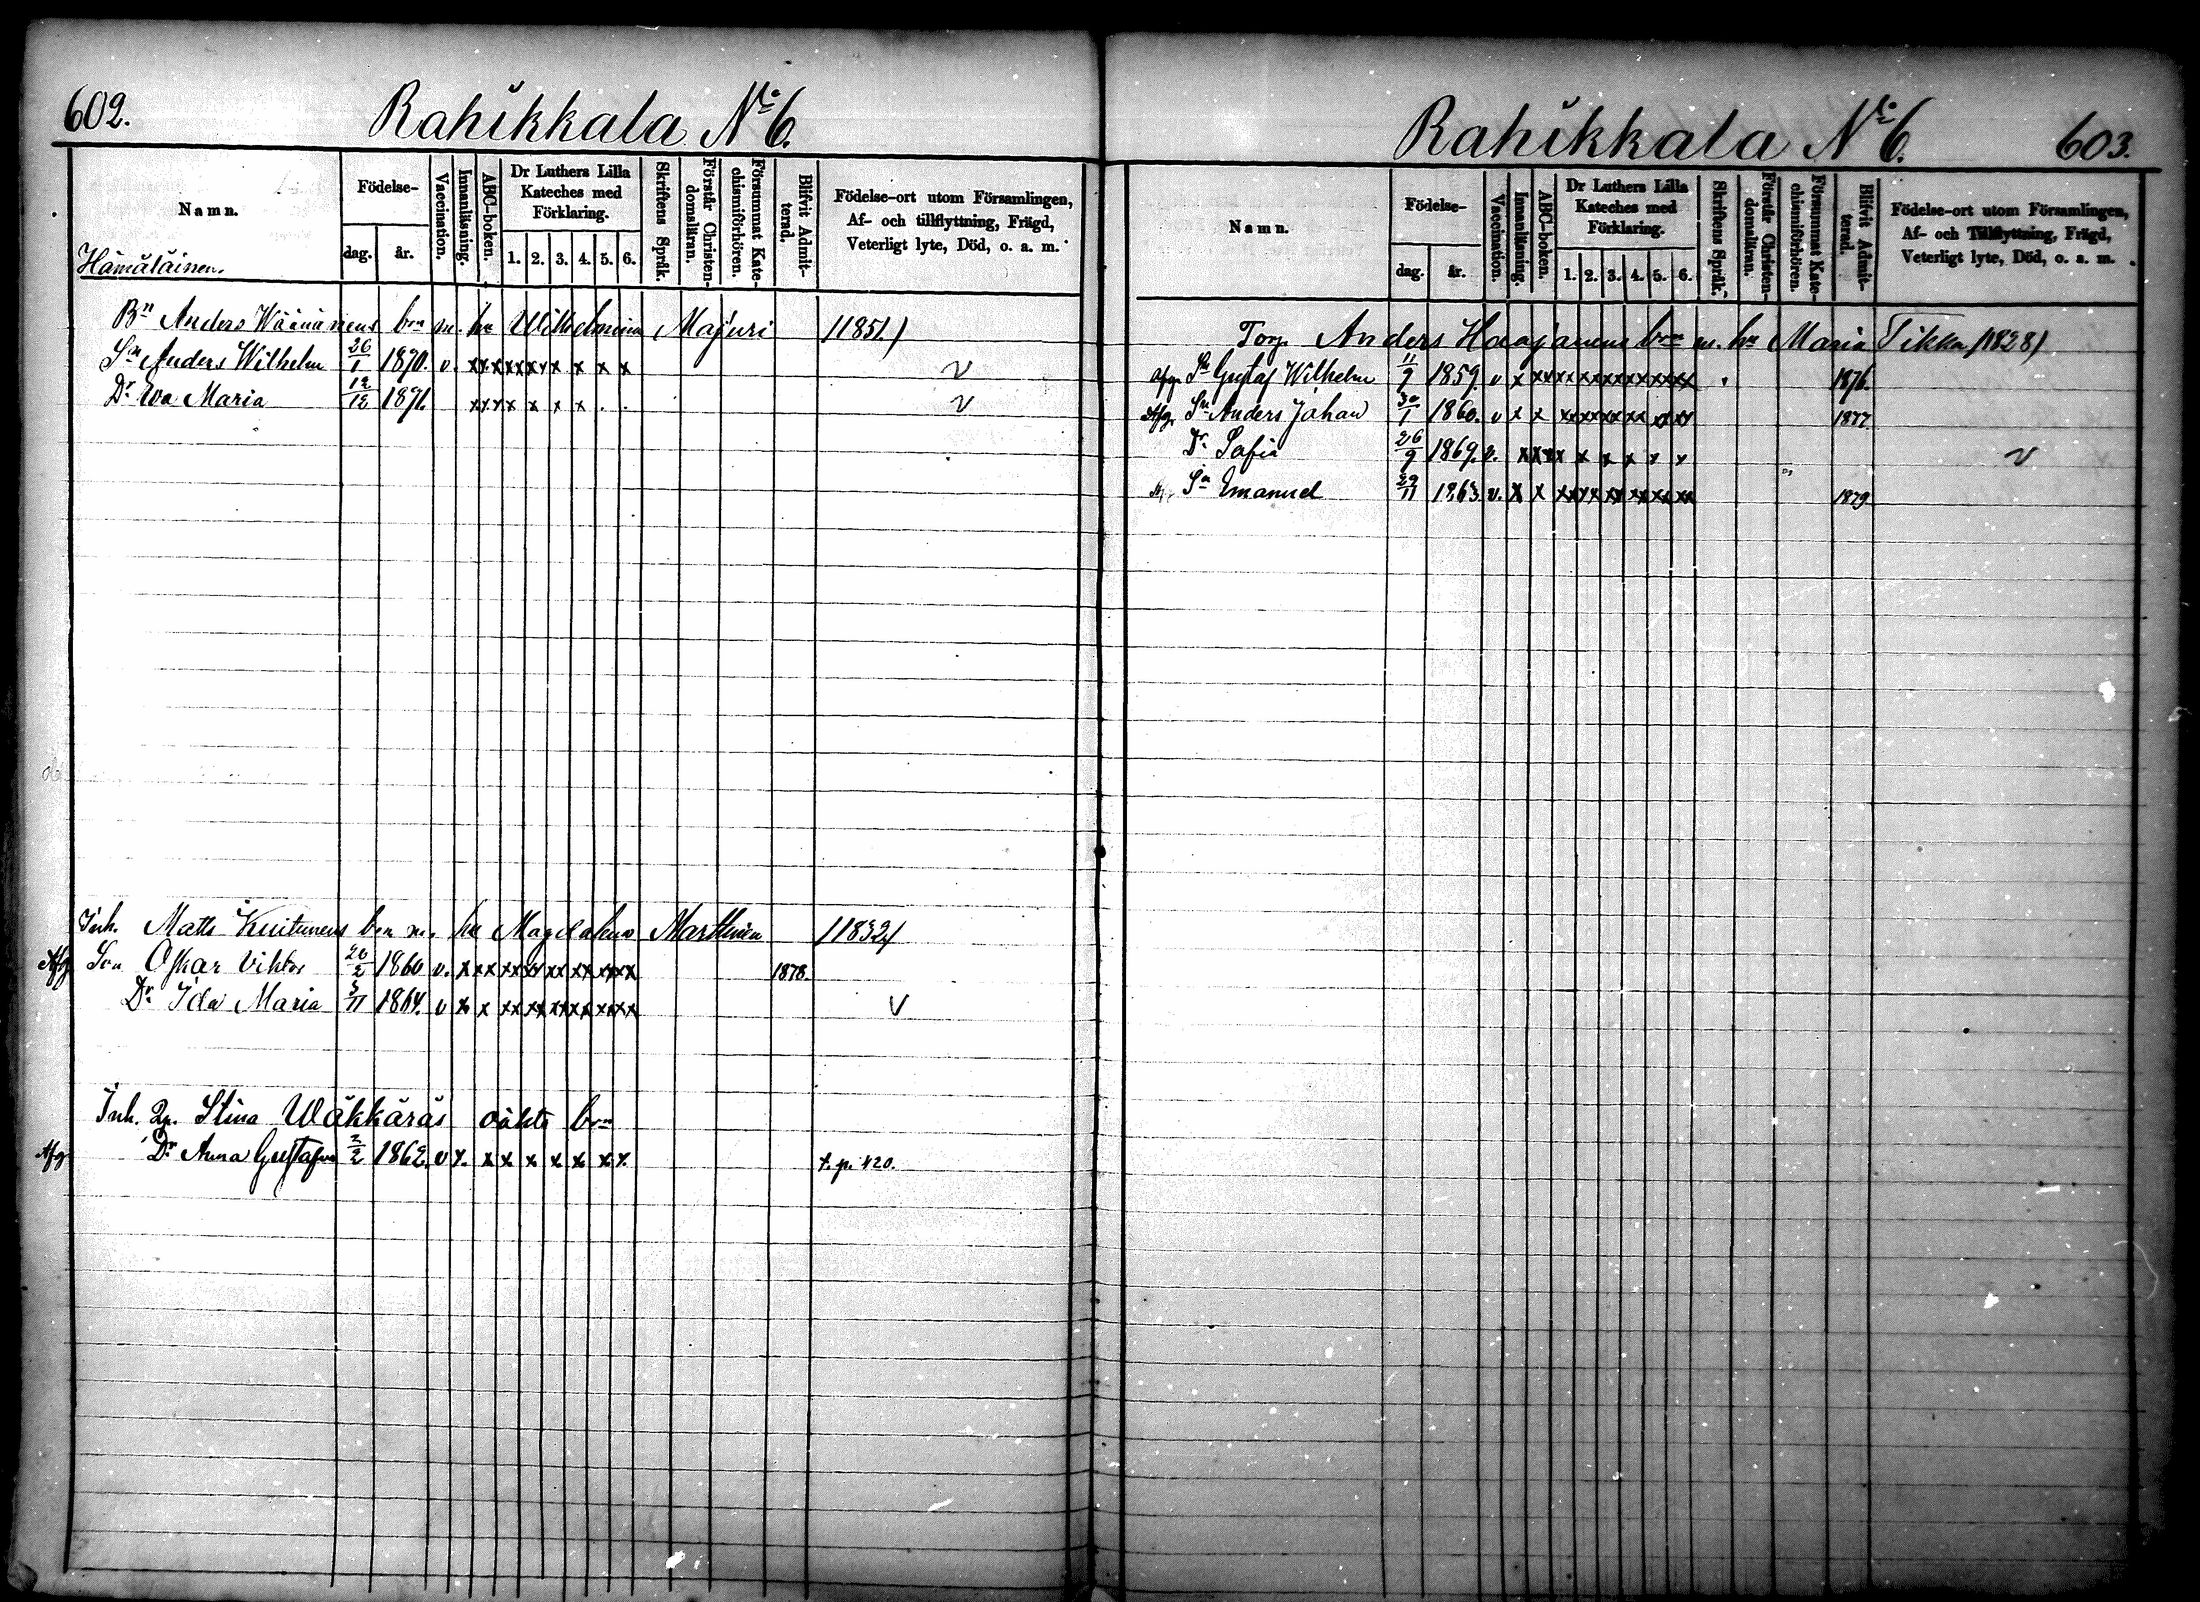 602.
Rahikkala No 6.
Namn.
Födelse-
dag.
år.
Vaccination.
Innanläsning.
ABC-boken.
Dr Luthers Lilla
Kateches med
Förklaring.
1. 2. 3. 4. 5. 6.
Skriftens Språk.
Förstår Christen-
domsläran.
Försummat Kate-
chismiförhören.
Blifvit Admit-
terad.
Födelse-ort utom Församlingen,
Af- och tillflyttning, Frägd,
Veterligt lyte, Död, o. a. m.
Hämäläinen.
Bn Anders Wäinänens brn m. hu Wilhelmina Majuri (1851.)
Sn Anders Wilhelm 26/1 1870. v. xxxxxxx x x x x v
Dr Eva Maria 12/12 1871. xxxx x x x . . v
Inh. Matts Kuitunens brn m. hu Magdalena Marttinen (1832)
Afg Son Oskar Viktor 20/2 1860 v. x xx xx xx xx xx xxxx 1878.
Dr Ida Maria 3/11 1864. v x x xx xx xx xx xxxx v
Inh. Qp. Stina Wäkkäräs oäkta brn
Afg Dr Anna Gustafva 2/2 1862. v x. x x x x x x x. t. p. 420.
Rahikkala No 6.
603.
Namn.
Födelse-
dag.
år.
Vaccination.
Innanläsning.
ABC-boken.
Dr Luthers Lilla
Kateches med
Förklaring.
1. 2. 3. 4. 5. 6.
Skriftens Språk.
Förstår Christen-
domsläran.
Försummat Kate-
chismiförhören.
Blifvit Admit-
terad.
Födelse-ort utom Församlingen,
Af- och Tillflyttning, Frägd,
Veterligt lyte, Död, o. a. m.
Torp. Anders Haajanens brn m. hu Maria Tikka (1828)
Afg Sn Gustaf Wilhelm 11/9 1859. v x xx xx xx xx xx xxxx 1876.
Afg Sn Anders Johan 30/1 1860. v x x xx xx xx xx xx 1877.
Dr Sofia 26/9 1869. v. xxxx x x x x x v
Sn Emanuel 29/11 1863. v. x x xx xx xx xx xx xx 1879